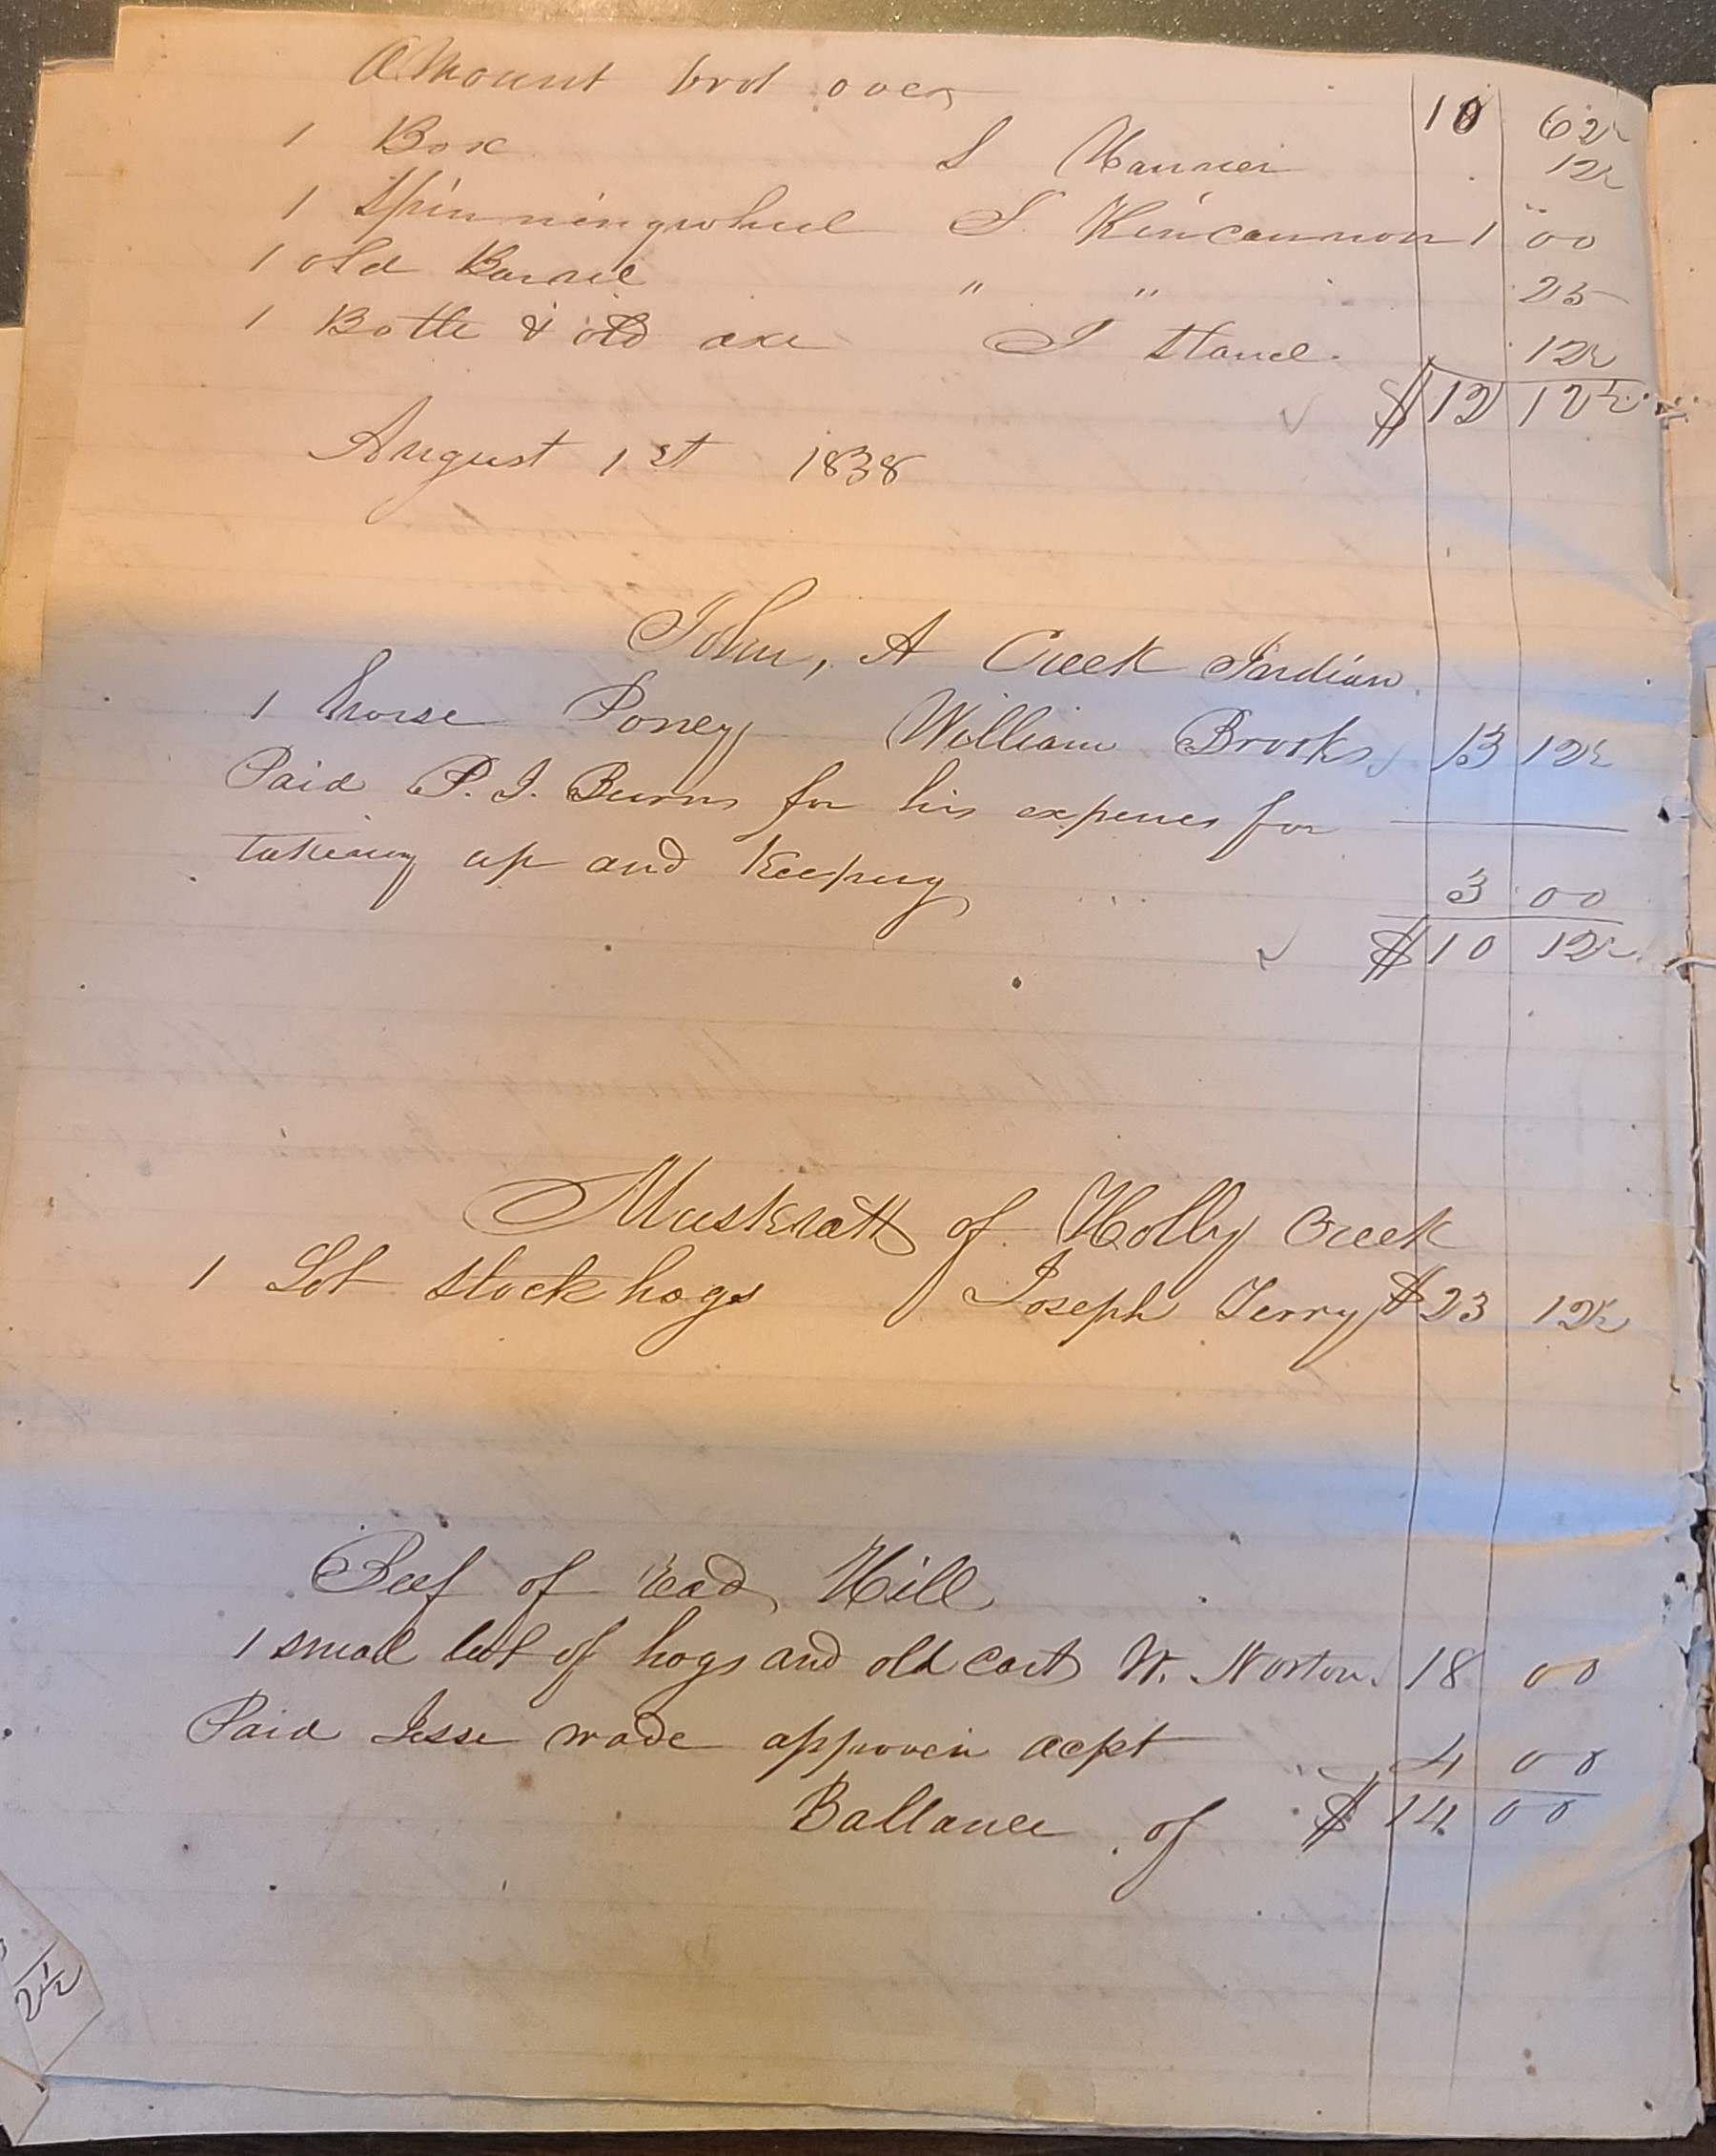 Amount brot over 10 62½
1 Box S 12½
1 Spinningwheel S. Kincannon 1 00
1 old Barrel " " 25
1 Bottle & old axe J 12½
$12 12½
August 1st 1838
John, A Creek Indian
1 horse Poney William Brooks 13 12½
Paid P. J. Burns for his expenses for
takeing up and Keeping 3 00
$10 12½
Muskratt of Holly Creek
1 Lot stock hogs Joseph Terry $23 12½
Beef of Read Hill
1 small lot of hogs and old cart W. Norton 18 00
Paid Jesse Wade approven acpt 4 00
Ballance of $14 00
2½